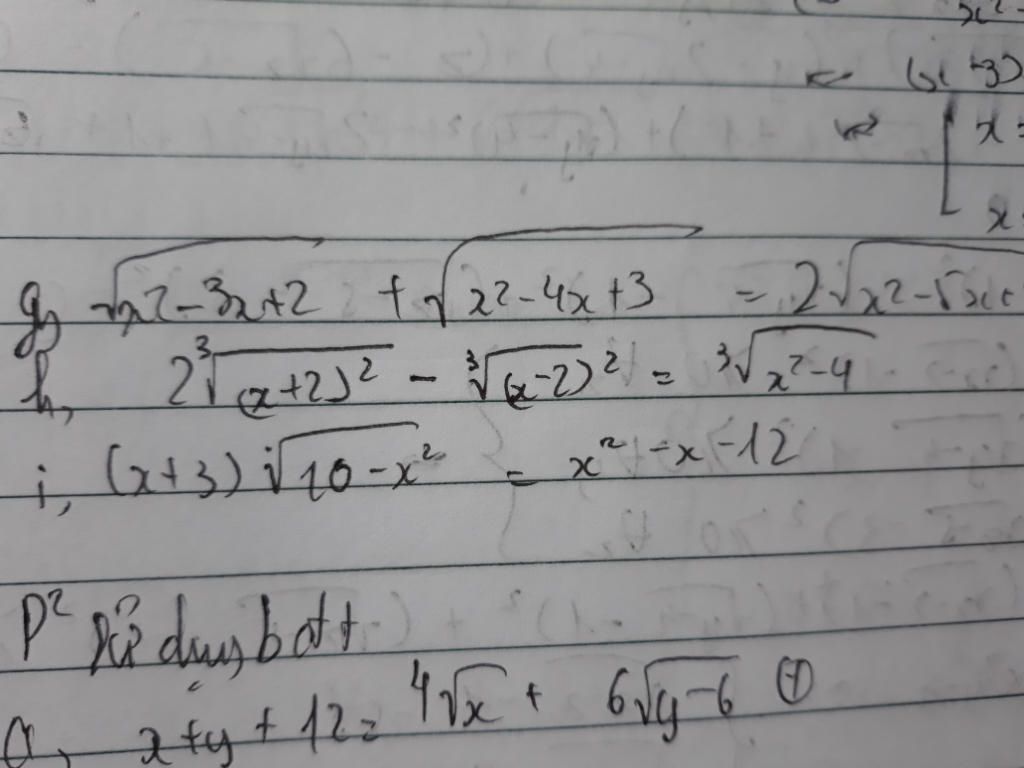 x² -
⇔ (x -3)
⇔ [ x =
x =
g, √(x²-3x+2) + √(x²-4x+3) = 2√(x²-5x+
h, 2∛(x+2)² - ∛(x-2)² = ∛(x²-4)
i, (x+3)√(10-x²) = x²-x-12
P² sử dụng bđtt
a, x+y+12 = 4√x + 6√(y-6) ⊕